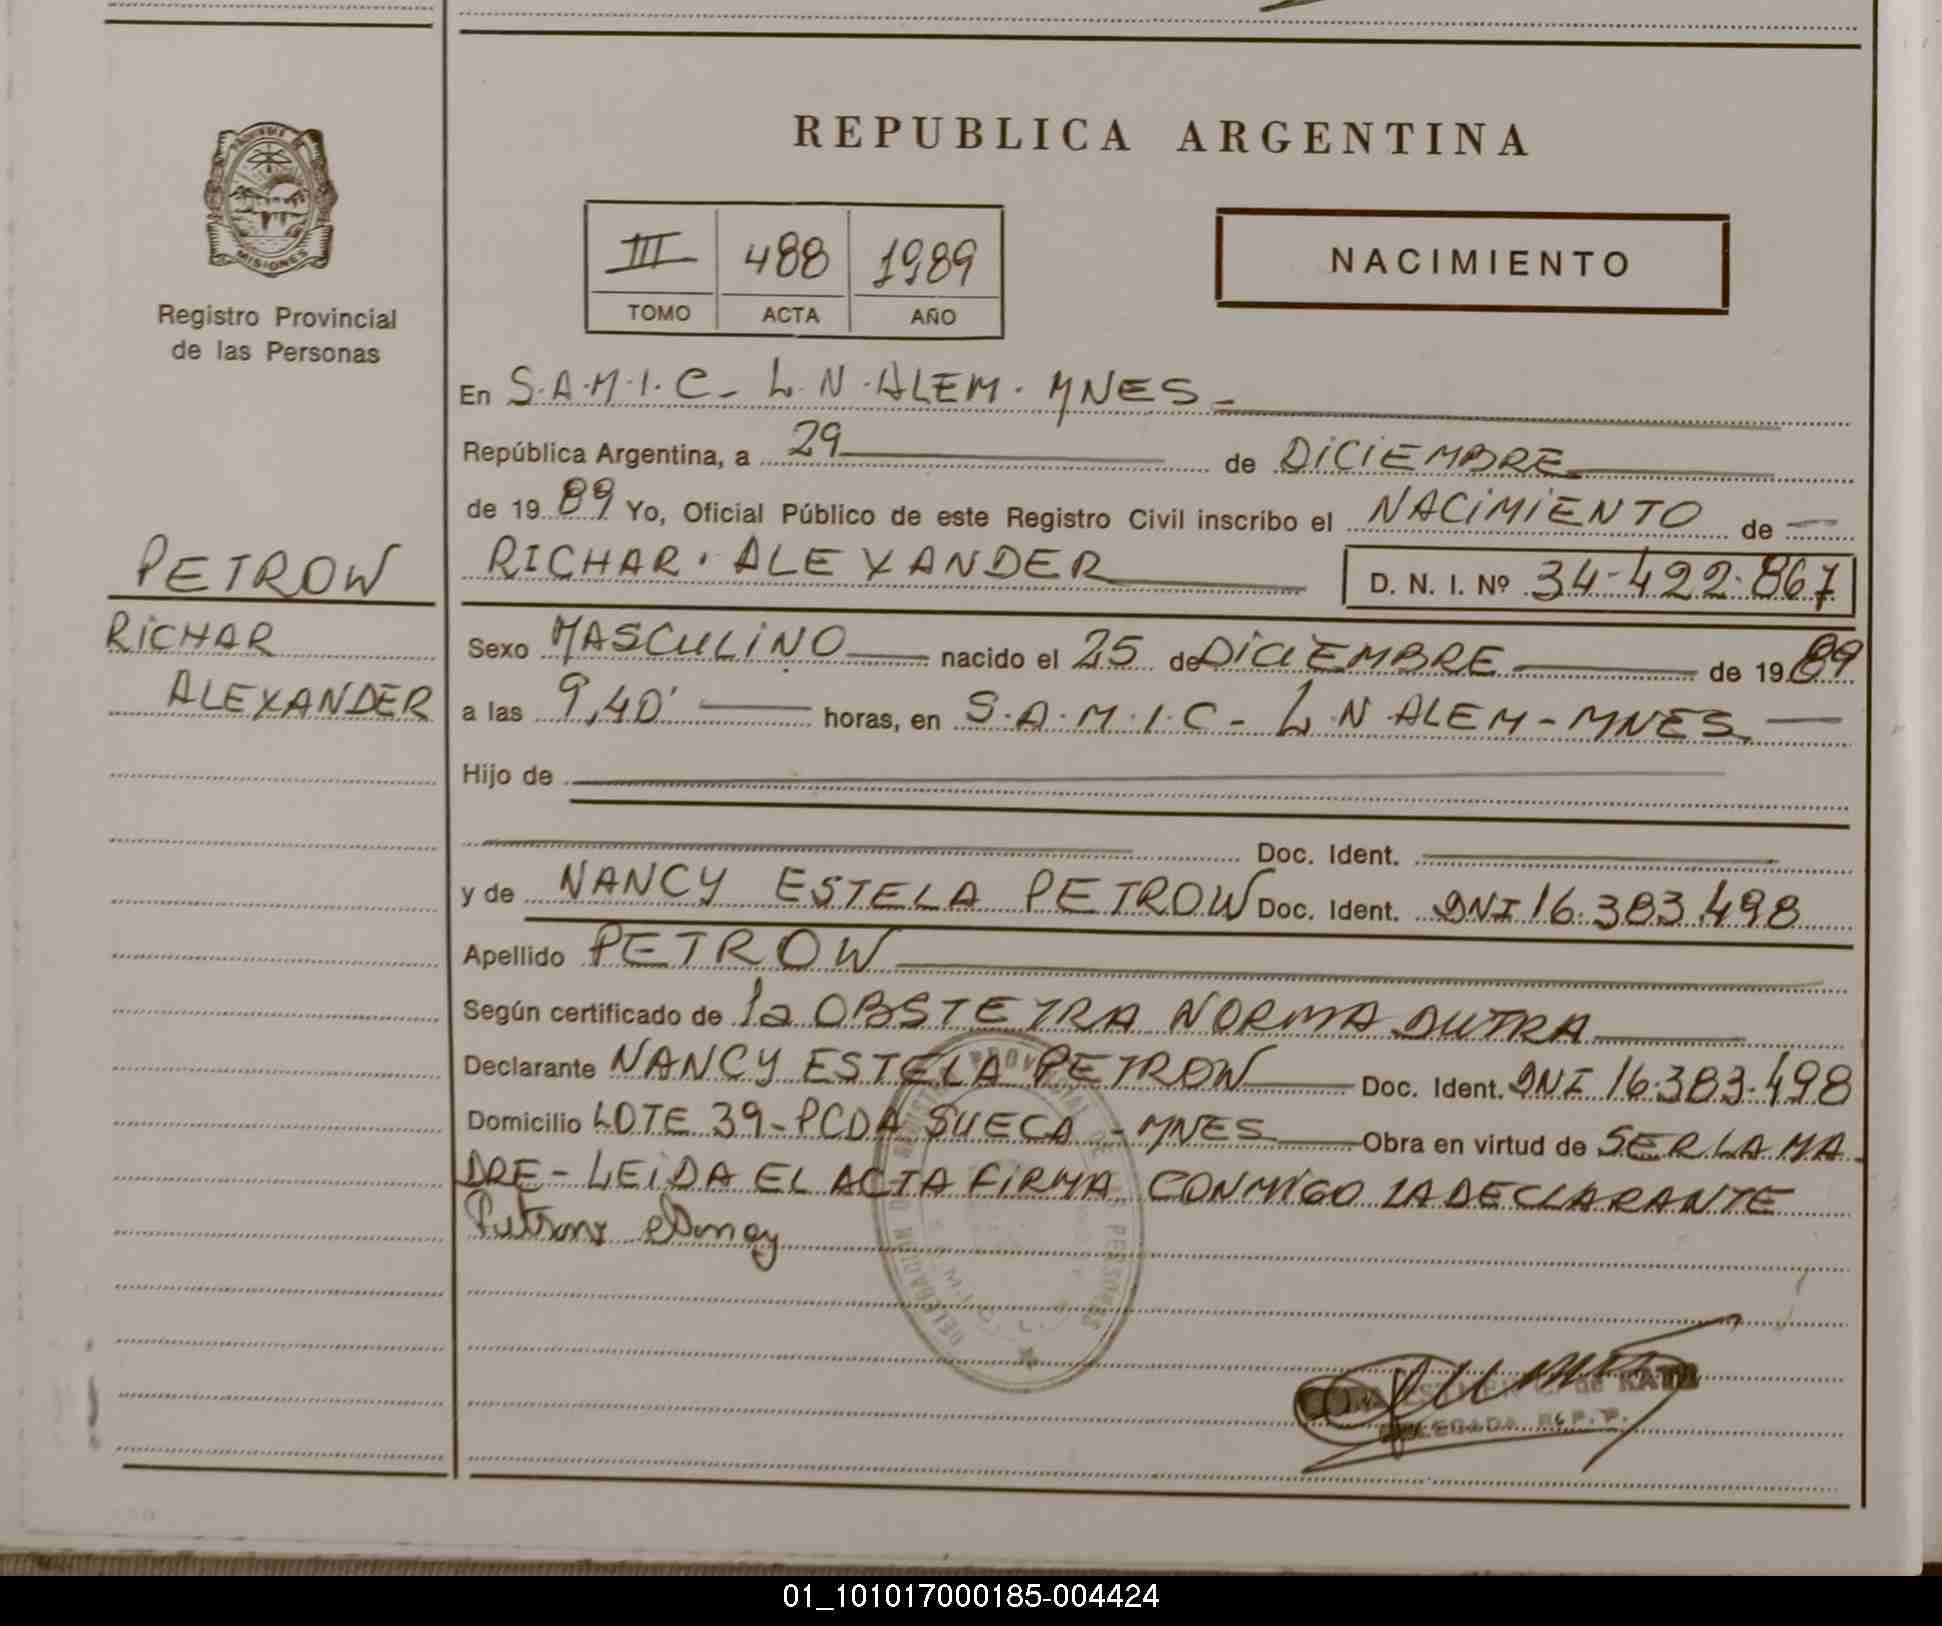 REPUBLICA ARGENTINA
PROVINCIA DE
MISIONES
Registro Provincial
de las Personas
III 488 1989
TOMO ACTA AÑO
NACIMIENTO
En S.A.M.I.C- L.N.ALEM. MNES-
República Argentina, a 29 de DICIEMBRE
de 19 89 Yo, Oficial Público de este Registro Civil inscribo el NACIMIENTO de
PETROW
RICHAR
ALEXANDER
RICHAR. ALEXANDER D. N. I. Nº 34-422.867
Sexo MASCULINO nacido el 25 de DICIEMBRE de 19 89
a las 9,40' horas, en S.A.M.I.C- L.N ALEM-MNES
Hijo de
Doc. Ident.
y de NANCY ESTELA PETROW Doc. Ident. DNI 16.383.498
Apellido PETROW
Según certificado de la OBSTETRA NORMA DUTRA
Declarante NANCY ESTELA PETROW Doc. Ident. DNI 16.383.498
Domicilio LOTE 39-PCDA SUECA - MNES Obra en virtud de SER LA MA
DRE- LEIDA EL ACTA FIRMA CONMIGO LA DECLARANTE
DELEGACION REGISTRO PROVINCIAL DE LAS PERSONAS
S.A.M.I.C.
de KATZ
DELEGADA R.P.P.
01_101017000185-004424